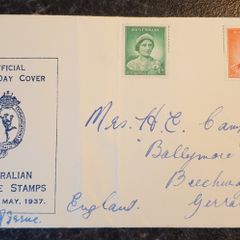 FFICIAL
DAY COVER
RALIAN
E STAMPS
MAY, 1937.
AUSTRALIA
Mrs. H. C. Cam
"Ballymore
Beechw
Gerra
England.